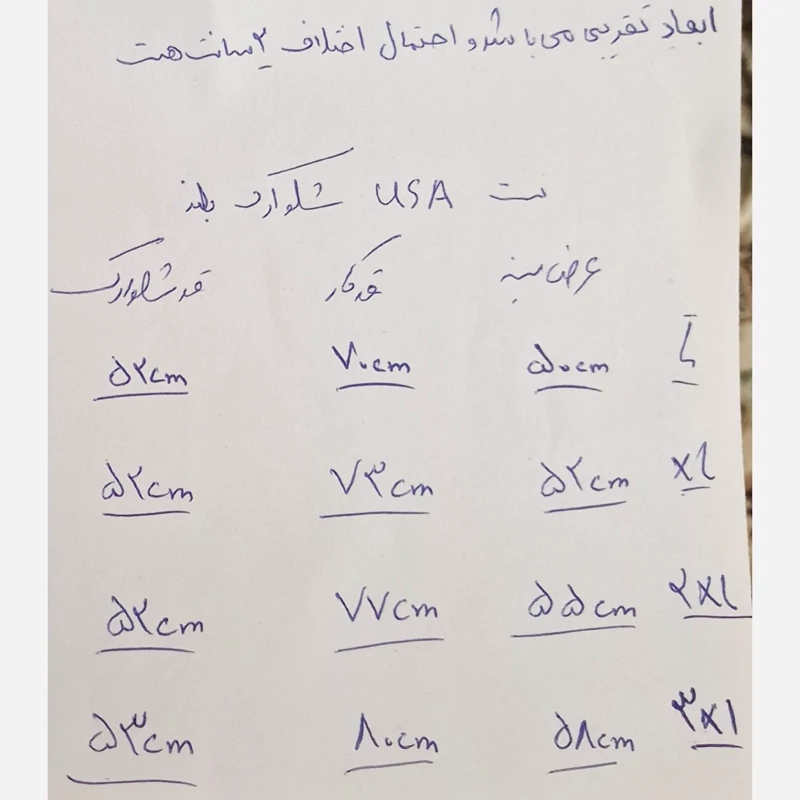 ابعاد تقریبی می باشد و احتمال اختلاف ۲ سانت هست
ست USA شلوارک بلند
عرض سینه قد کار قد شلوارک
L ۵۰cm ۷۰cm ۵۲cm
XL ۵۲cm ۷۳cm ۵۲cm
۲XL ۵۵cm ۷۷cm ۵۲cm
۳XL ۵۸cm ۸۰cm ۵۳cm